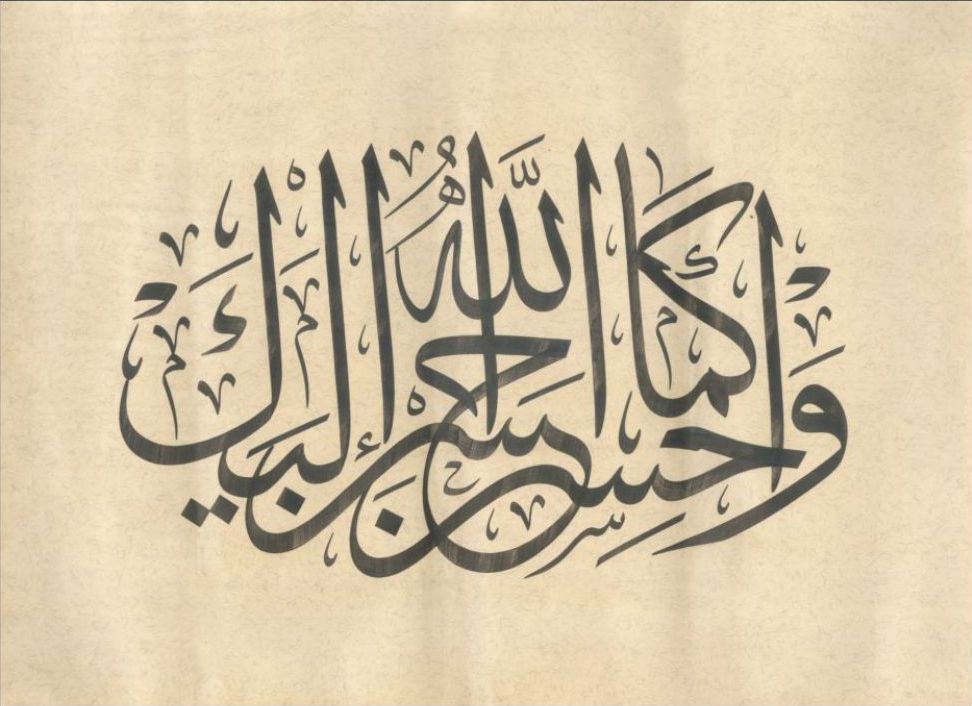 وَأَحْسِنْ كَمَا أَحْسَنَ اللَّهُ إِلَيْكَ